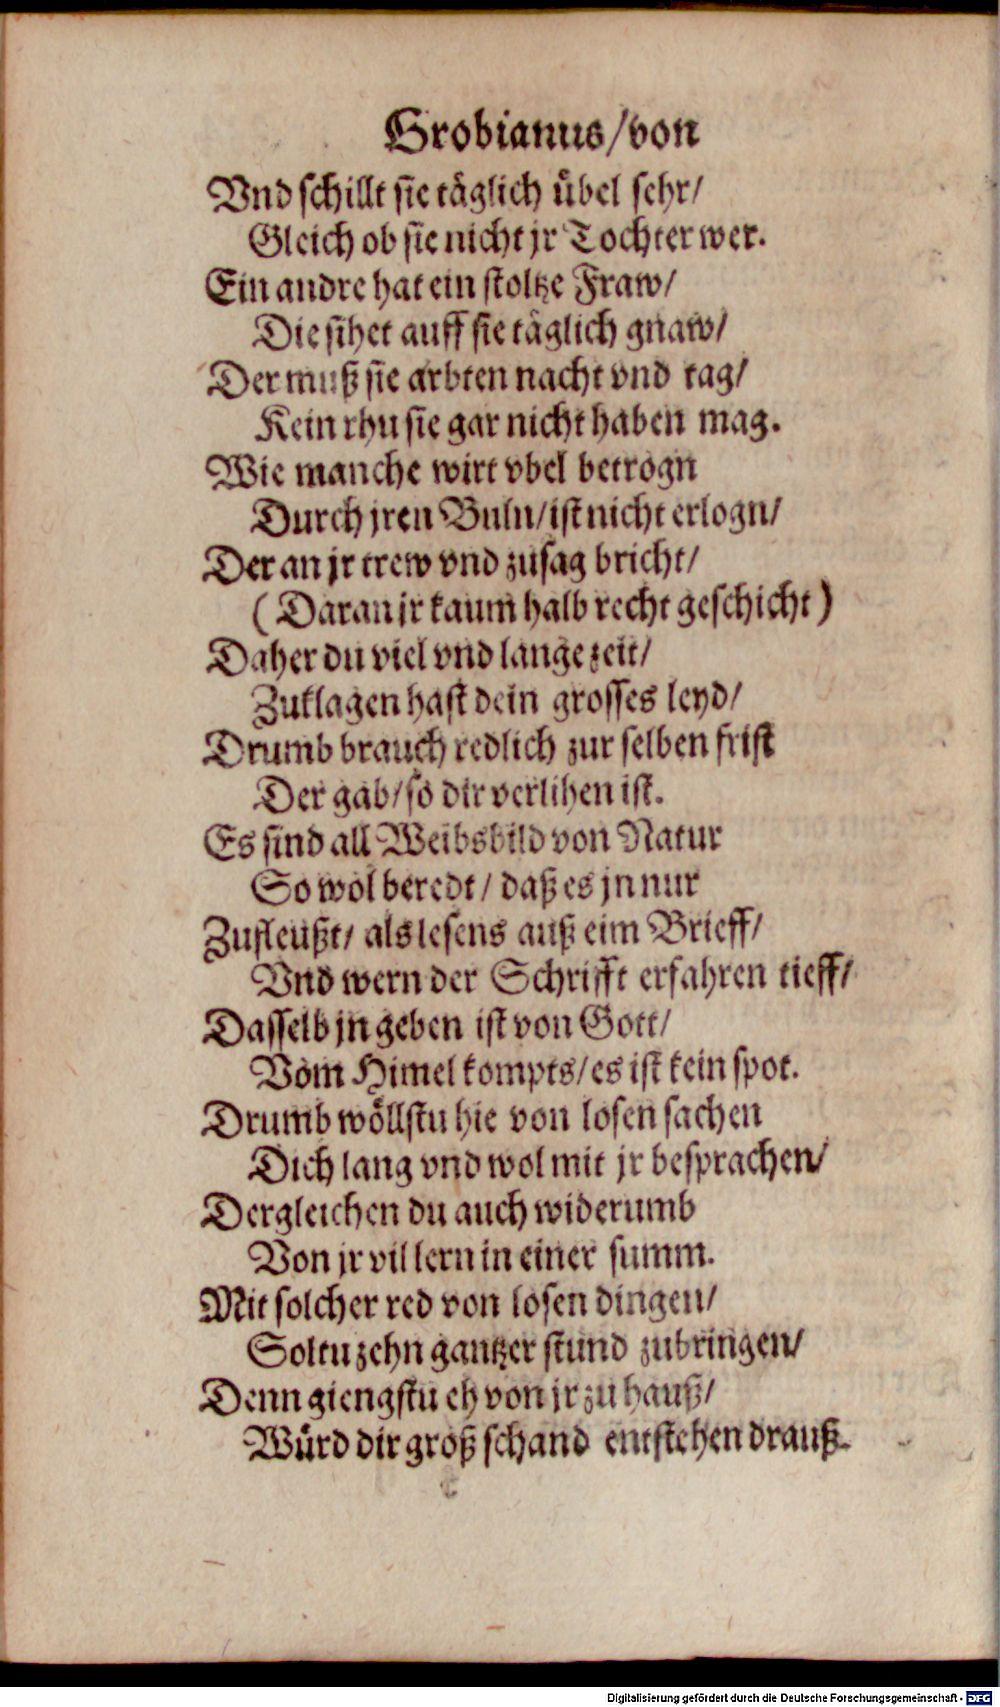 Grobianus/von
Vnd schillt sie täglich übel sehr/
Gleich ob sie nicht jr Tochter wer.
Ein andre hat ein stoltze Fraw/
Die sihet auff sie täglich gnaw/
Der muß sie arbten nacht vnd tag/
Kein rhu sie gar nicht haben mag.
Wie manche wirt vbel betrogn
Durch jren Buln/ist nicht erlogn/
Der an jr trew vnd zusag bricht/
(Daran jr kaum halb recht geschicht)
Daher du viel vnd lange zeit/
Zuklagen hast dein grosses leyd/
Drumb brauch redlich zur selben frist
Der gab/so dir verlihen ist.
Es sind all Weibsbild von Natur
So wol beredt/ daß es jn nur
Zufleußt/ als lesens auß eim Brieff/
Vnd wern der Schrifft erfahren tieff/
Dasselb jn geben ist von Gott/
Vom Himel kompts/es ist kein spot.
Drumb wöllstu hie von losen sachen
Dich lang vnd wol mit jr besprachen/
Dergleichen du auch widerumb
Von jr vil lern in einer summ.
Mit solcher red von losen dingen/
Soltu zehn gantzer stund zubringen/
Denn giengstu eh von jr zu hauß/
Würd dir groß schand entstehen drauß.
Digitalisierung gefördert durch die Deutsche Forschungsgemeinschaft - DFG